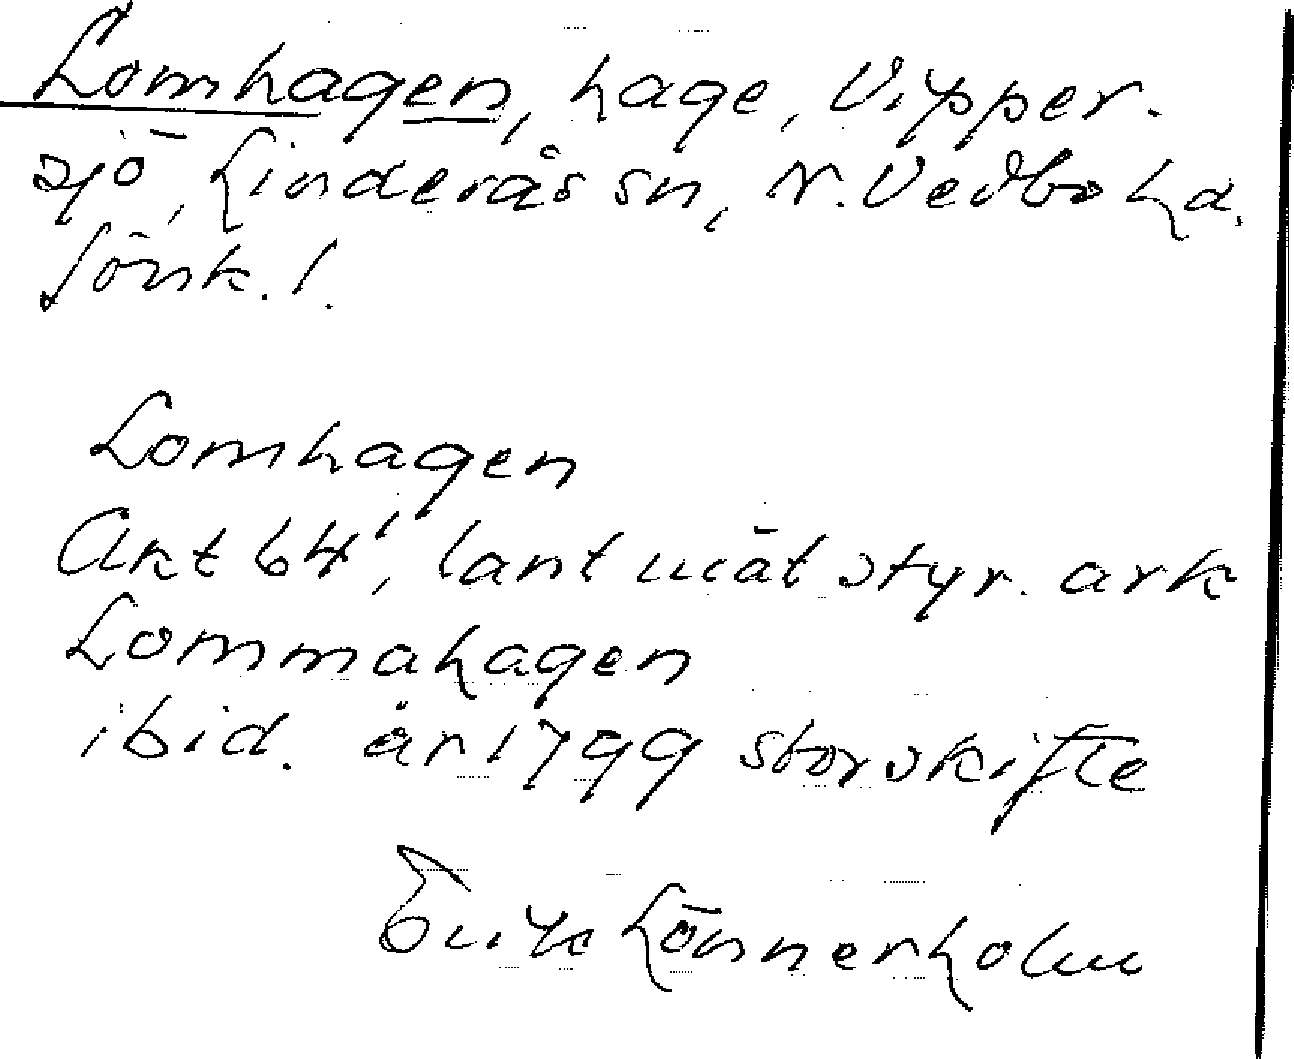 Lomhagen, hage, Vipper-
sjö, Linderås sn, N. Vedbo hd.
Jönk. l.
Lomhagen
Akt 64¹, lantmät styr. ark
Lommahagen
ibid. år 1799 storskifte
Erik Lönnerholm